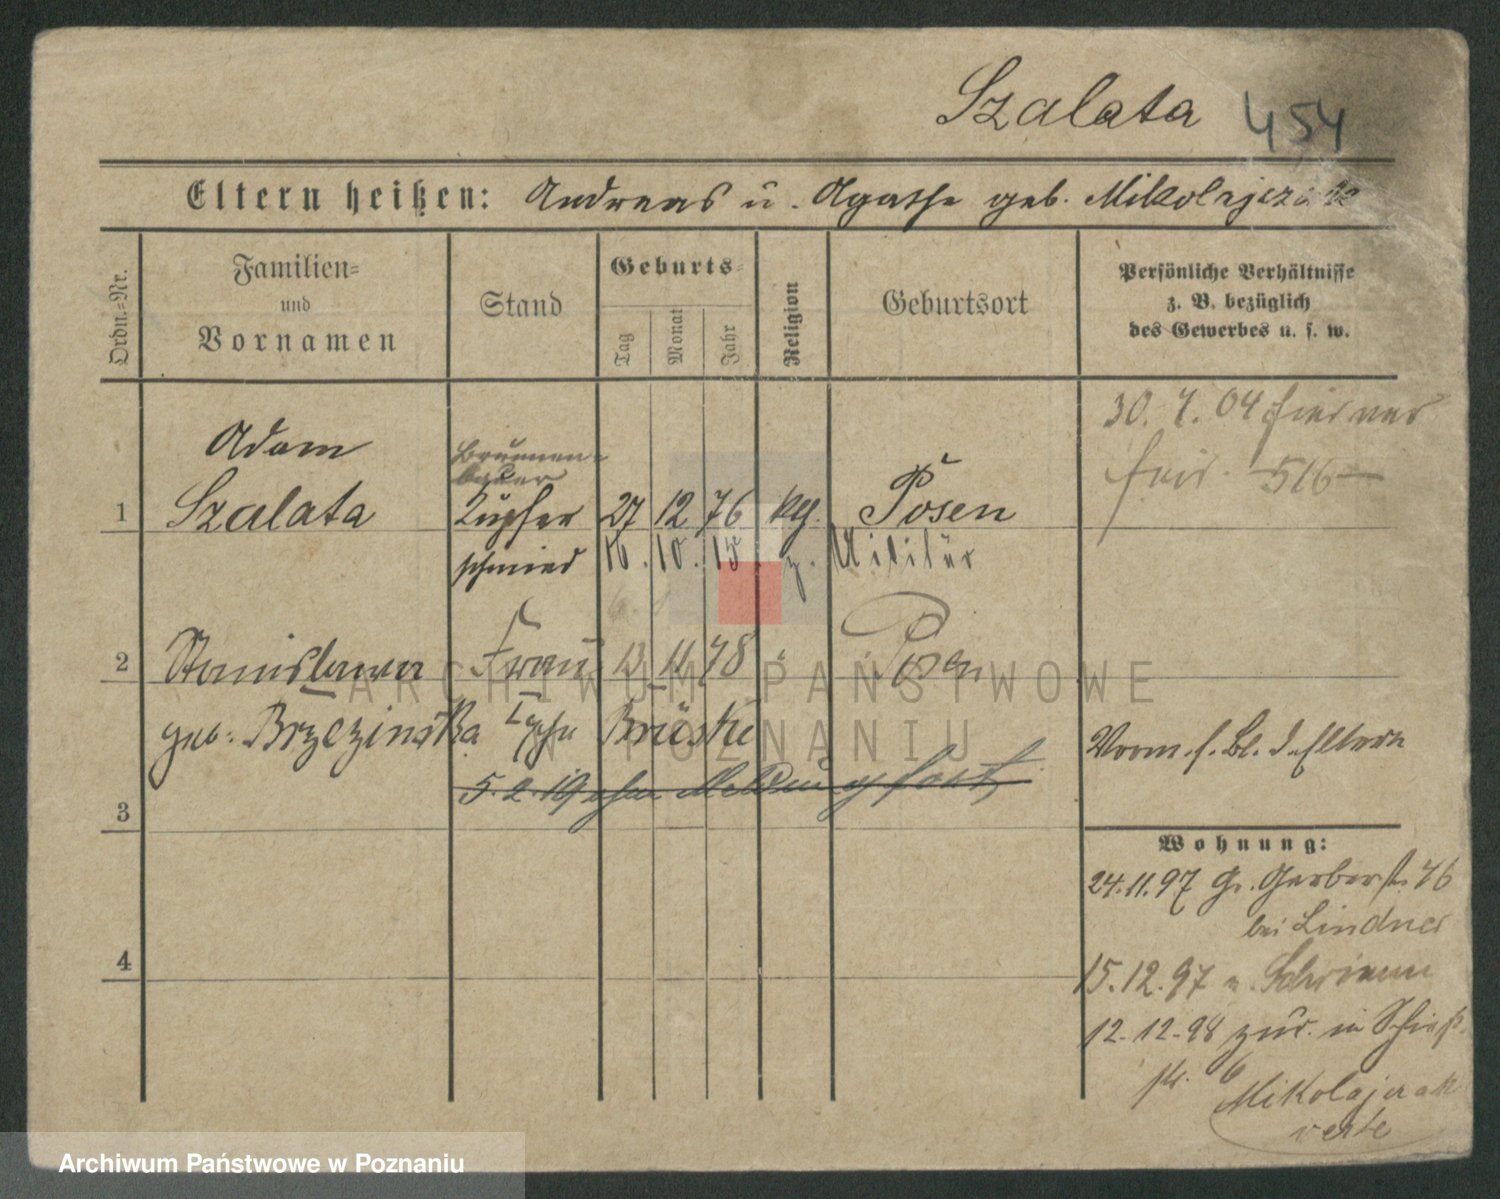 Szalata 454
Eltern heißen: Andreas u. Agathe geb. Mikolajczak
Ordn.-Nr.
Familien-
und
Vornamen
Stand
Geburts-
Tag
Monat
Jahr
Religion
Geburtsort
Persönliche Verhältnisse
z. B. bezüglich
des Gewerbes u. s. w.
30. 7. 04
516
Adam
Brunnen-
bauer
1 Szalata Kupfer 27 12 76 kath. Posen
schmied 16. 10. 15 z. Militär
2 Stanislawa Frau 13 11 78 " Posen
geb. Brzezinska Brüske
Eltern
5. 2. 19 ohne Meldung fort
3
Wohnung:
24.11.97 Gr. Gerberst. 46
bei Lindner
4
15.12.97 n. Schrimm
12.12.98 zur. in Schieß-
str. 6
Mikolajczak
verte
ARCHIWUM PAŃSTWOWE
W POZNANIU
Archiwum Państwowe w Poznaniu